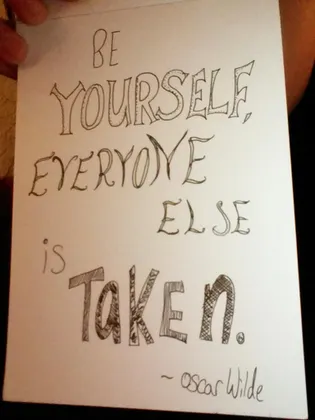 BE
YOURSELF,
EVERYONE
ELSE
is
TaKEn.
~ oscar Wilde